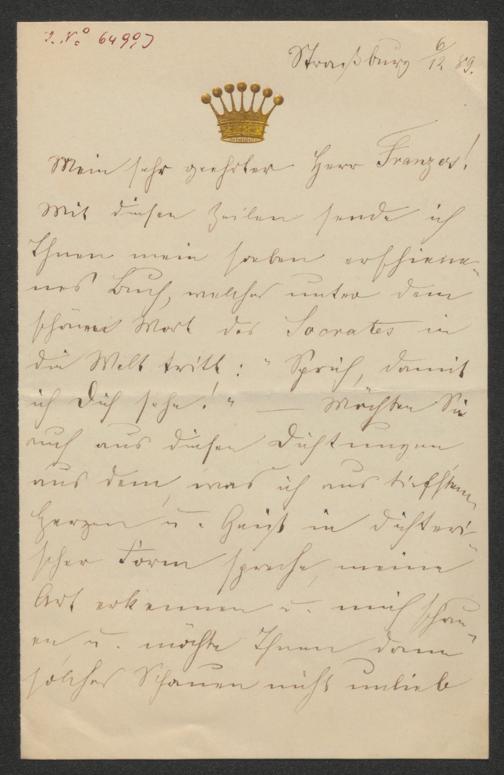 J. No 64997
Straßburg 6/12 89.
Mein sehr geehrter Herr Franzos!
Mit diesen Zeilen sende ich
Ihnen mein soeben erschiene-
nes Buch, welches unter dem
schönen Wort des Socrates in
die Welt tritt: "Sprich, damit
ich Dich sehe!" — Möchten Sie
auch aus diesen Dichtungen
aus dem, was ich aus tiefstem
Herzen u. Geist in dichteri-
scher Form spreche, meine
Art erkennen u. mich schau-
en, u. möchte Ihnen dann
solches Schauen nicht unlieb